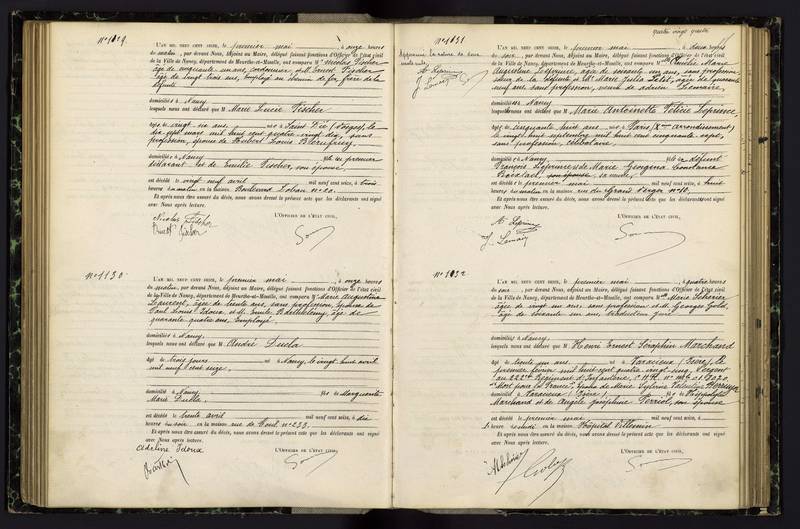 N° 1129
L'AN MIL NEUF CENT SEIZE, le premier mai, à onze heures
du matin, par devant Nous, Adjoint au Maire, délégué faisant fonctions d'Officier de l'état civil
de la Ville de Nancy, département de Meurthe-et-Moselle, ont comparu Mr Nicolas Fischer
âgé de cinquante ans, cordonnier, et Mr Ernest Fischer
âgé de vingt trois ans, employé au chemin de fer, frère de la
défunte
domiciliés à Nancy
lesquels nous ont déclaré que M Marie Lucie Fischer
âgée de vingt six ans, née à Saint Dié (Vosges), le
dix sept mars mil huit cent quatre-vingt dix, sans
profession, épouse de Hubert Louis
domiciliée à Nancy, fille du premier
déclarant et de Emélie Fischer, son épouse
est décédée le vingt neuf avril mil neuf cent seize, à trois
heures du matin en la maison Boulevard Lobau n° 20.
Et après nous être assuré du décès, nous avons dressé le présent acte que les déclarants ont signé
avec Nous après lecture.
L'OFFICIER DE L'ÉTAT CIVIL,
Nicolas Fischer
Ernest Fischer
N° 1130
L'AN MIL NEUF CENT SEIZE, le premier mai, à onze heures
du matin, par devant Nous, Adjoint au Maire, délégué faisant fonctions d'Officier de l'état civil
de la Ville de Nancy, département de Meurthe-et-Moselle, ont comparu Me Marie Augustine
âgée de trente ans, sans profession, épouse de
Paul Louis Idoux, et M. Emile Barthélemy, âgé de
quarante quatre ans, employé
domiciliés à Nancy
lesquels nous ont déclaré que M André
âgé de trois jours, né à Nancy, le vingt huit avril
mil neuf cent seize
domicilié à Nancy, fils de Marguerite
Marie
est décédé le trente avril mil neuf cent seize, à dix
heures du soir en la maison rue de Toul n° 233.
Et après nous être assuré du décès, nous avons dressé le présent acte que les déclarants ont signé
avec Nous après lecture.
L'OFFICIER DE L'ÉTAT CIVIL,
Adeline Idoux
Quatre vingt quatre
N° 1131
L'AN MIL NEUF CENT SEIZE, le premier mai, à deux heures
du soir, par devant Nous, Adjoint au Maire, délégué faisant fonctions d'Officier de l'état civil
de la Ville de Nancy, département de Meurthe-et-Moselle, ont comparu Marie
Augustine Leprince, âgée de soixante un ans, sans profession
sœur de la défunte et Me Marie Julie Petit, âgée de quarante
neuf ans, sans profession, veuve de Adrien Lemaire,
domiciliées Nancy
lesquelles nous ont déclaré que M Marie Antoinette Félicie Leprince,
âgée de cinquante huit ans, née à Paris (Xme arrondissement)
le vingt huit septembre mil huit cent cinquante sept,
sans profession, célibataire
domiciliée à Nancy, fille de défunt
François Leprince et de Marie Georgina Constance
son épouse, sa veuve
est décédée le premier mai mil neuf cent seize, à huit
heures du matin en la maison rue du Grand Verger n° 10.
Et après nous être assuré du décès, nous avons dressé le présent acte que les déclarants ont signé
avec Nous après lecture.
L'OFFICIER DE L'ÉTAT CIVIL,
A. Leprince
J. Lemaire
N° 1132
L'AN MIL NEUF CENT SEIZE, le premier mai, à quatre heures
du soir, par devant Nous, Adjoint au Maire, délégué faisant fonctions d'Officier de l'état civil
de la Ville de Nancy, département de Meurthe-et-Moselle, ont comparu Marie
âgée de vingt un ans, sans profession et M. Georges
âgé de soixante un ans,
domiciliés à Nancy
lesquels nous ont déclaré que M Henri Ernest Séraphin Marchand
âgé de trente un ans, né à Varacieux (Isère), le
premier février mil huit cent quatre vingt cinq, Sergent
au 222e Régiment d'Infanterie,
"Mort pour la France", époux de Marie
domicilié à Varacieux (Isère), fils de Hippolyte
Marchand et de Angèle Joséphine, son épouse
est décédé le premier mai mil neuf cent seize, à
heure en la maison Hôpital Villemin
Et après nous être assuré du décès, nous avons dressé le présent acte que les déclarants ont signé
avec Nous après lecture.
L'OFFICIER DE L'ÉTAT CIVIL,